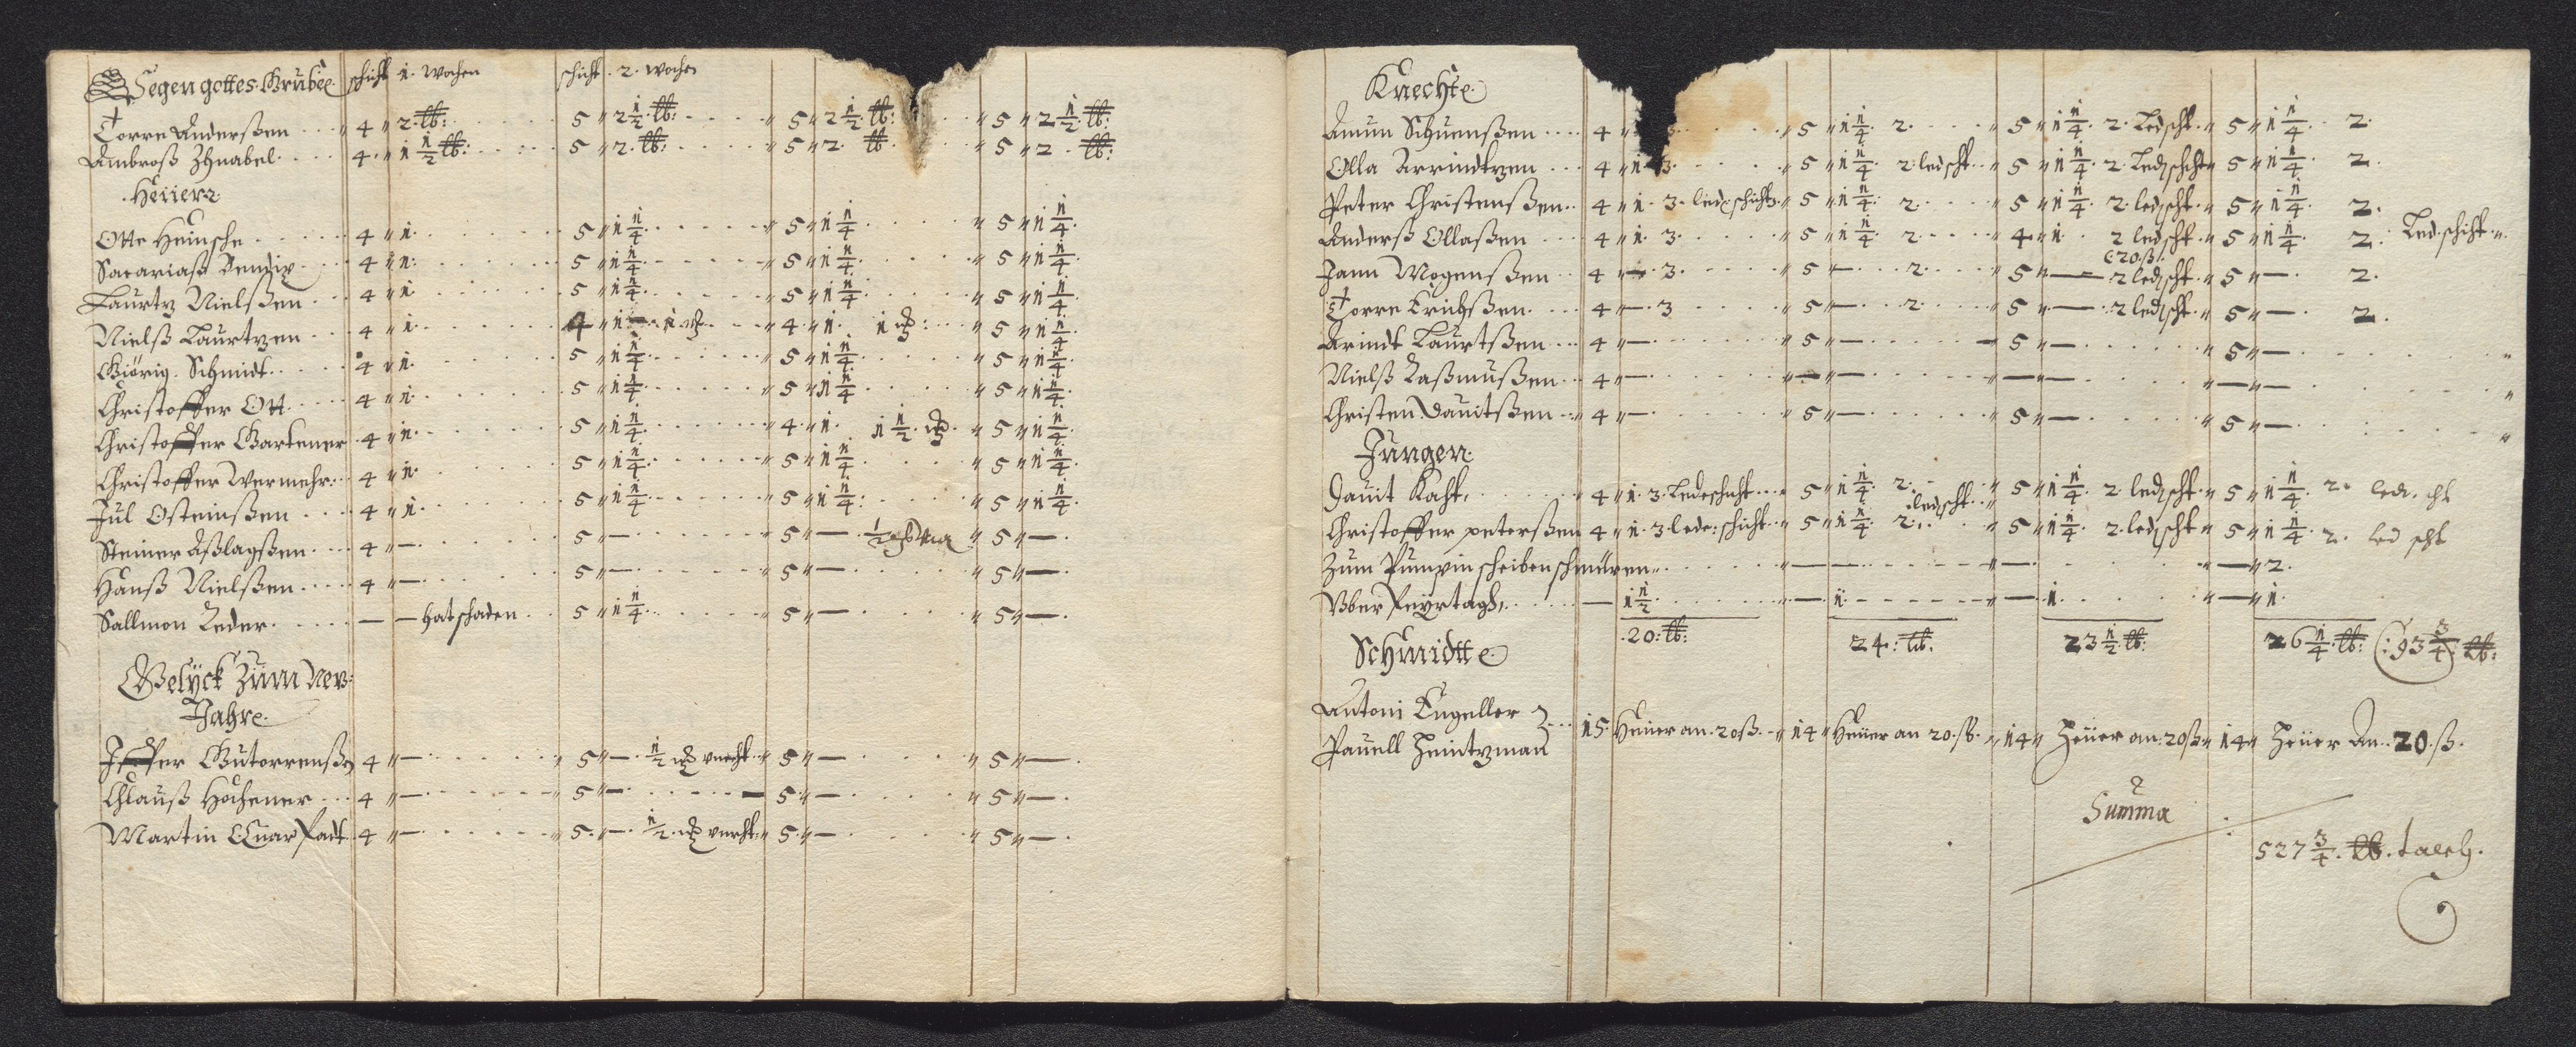 Segen gottes Grube schicht 1. Wochen schicht. 2. Woche
Torre Anderßen 4 2 lb: 5 2 1/2 lb: 5 2 1/2 lb: 5 2 1/2 lb:
Ambroß Zhnabel 4 1 1/2 lb: 5 2 lb: 5 2 lb 5 2 lb:
Heüier
Otte Heinsche 4 1 5 1 1/4 5 1 1/4 5 1 1/4
Sacariaß Bendix 4 1 5 1 1/4 5 1 1/4 5 1 1/4
Laurtz Nielßen 4 1 5 1 1/4 5 1 1/4 5 1 1/4
Nielß Laurtzen 4 1 4 1 4 1 5 1 1/4
Giörig Schmidt 4 1 5 1 1/4 5 1 1/4 5 1 1/4
Christoffer Ott 4 1 5 1 1/4 5 1 1/4 5 1 1/4
Christoffer Gartener 4 1 5 1 1/4 4 1 1 1/2 5 1 1/4
Christoffer Wermehr 4 1 5 1 1/4 5 1 1/4 5 1 1/4
Jul Osteinßen 4 1 5 1 1/4 5 1 1/4 5 1 1/4
Steiner Aßlagßen 4 — 5 — 5 — 1/2 5 —
Hanß Nielßen 4 — 5 — 5 — 5 —
Sallmon Reder — — hat schaden 5 1 1/4 5 — 5 —
Gelück Zum New
Jahre
Iffer Gutorrenßen 4 — 5 — 1/2 5 — 5 —
Clauß Hochener 4 — 5 — 5 — 5 —
Martin Quarfadt 4 — 5 — 1/2 5 — 5 —
Knechte
Amun Schuenßen 4 3 5 1 1/4 2 5 1 1/4 2 Ledscht 5 1 1/4 2
Olla Arrindtzen 4 1 3 5 1 1/4 2 ledscht 5 1 1/4 2 Ledschicht 5 1 1/4 2
Peter Christenßen 4 1 3 led schicht 5 1 1/4 2 5 1 1/4 2 ledscht 5 1 1/4 2
Anderß Ollaßen 4 1 3 5 1 1/4 2 4 1 2 ledscht 5 1 1/4 2 Led schicht
Jann Mogenßen 4 — 3 5 — 2 5 — 2 ledscht 5 — 2
Torre Erichßen 4 — 3 5 — 2 5 — 2 ledscht 5 — 2
Arindt Laurtßen 4 — 5 — 5 — 5 —
Nielß Raßmußen 4 — — — — — — —
Christen Dauitßen 4 — 5 — 5 — 5 —
Jungen
Dauit Kaht 4 1 3 Ledeschicht 5 1 1/4 2 ledscht 5 1 1/4 2 ledscht 5 1 1/4 2 led. cht
Christoffer peterßen 4 1 3 lede: schicht 5 1 1/4 2 5 1 1/4 2 ledscht 5 1 1/4 2 led scht
Zum Pumpin scheiben schmüren — — — — 2
Vber feyrtagh — 1 1/2 — 1 — 1 — 1
20: lb: 24: lb. 23 1/2 lb: 26 1/4 lb: (: 93 3/4 :) lb:
Schmidtte
Antoni Engeller
Pauell Heintzman 15 Heuer an 20 ß 14 Heüer an 20 ß 14 Heüer an 20 ß 14 Heüer An 20 ß
Summa
527 3/4 lb. taelh.